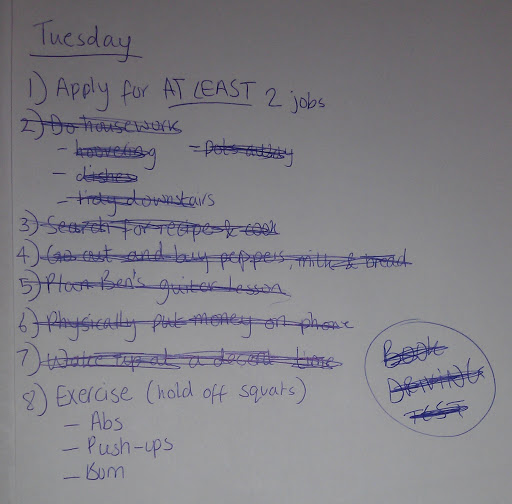 Tuesday
1) Apply for AT LEAST 2 jobs
2) Do housework
- hoovering - pots away
- dishes
- tidy downstairs
3) Search for recipe & cook
4) Go out and buy peppers, milk & bread
5) Plan Ben's guitar lesson
6) Physically put money on phone
7) Wake up at a decent time
8) Exercise (hold off squats)
- Abs
- Push-ups
- Bum
BOOK
DRIVING
TEST